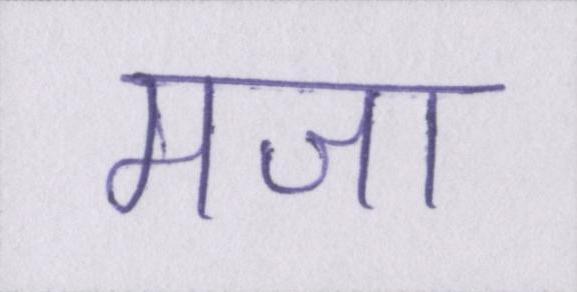 मजा